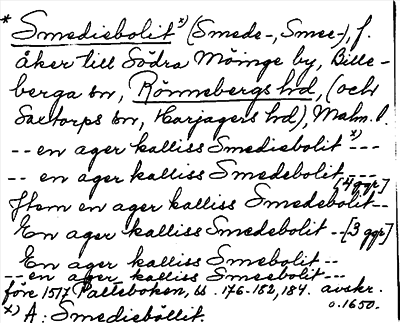 * Smediebolit x) (Smede-, Smee-), f.
åker till Södra Möinge by, Bille-
berga sn, Rönnebergs hd, (och
Saxtorps sn, Harjagers hd), Malm. l.
-- en ager kalliss Smediebolit x) ---
-- en ager kalliss Smedebolit, ---
[4 ggr]
Item en ager kalliss Smedebolit --
En ager kalliss Smedebolit -- [3 ggr]
En ager kalliss Smebolit --
--- en ager kalliss Smeebolit ---
före 1577 Palteboken, ss. 176-182, 184. avskr.
o. 1650.
x) A: Smedieböllit.